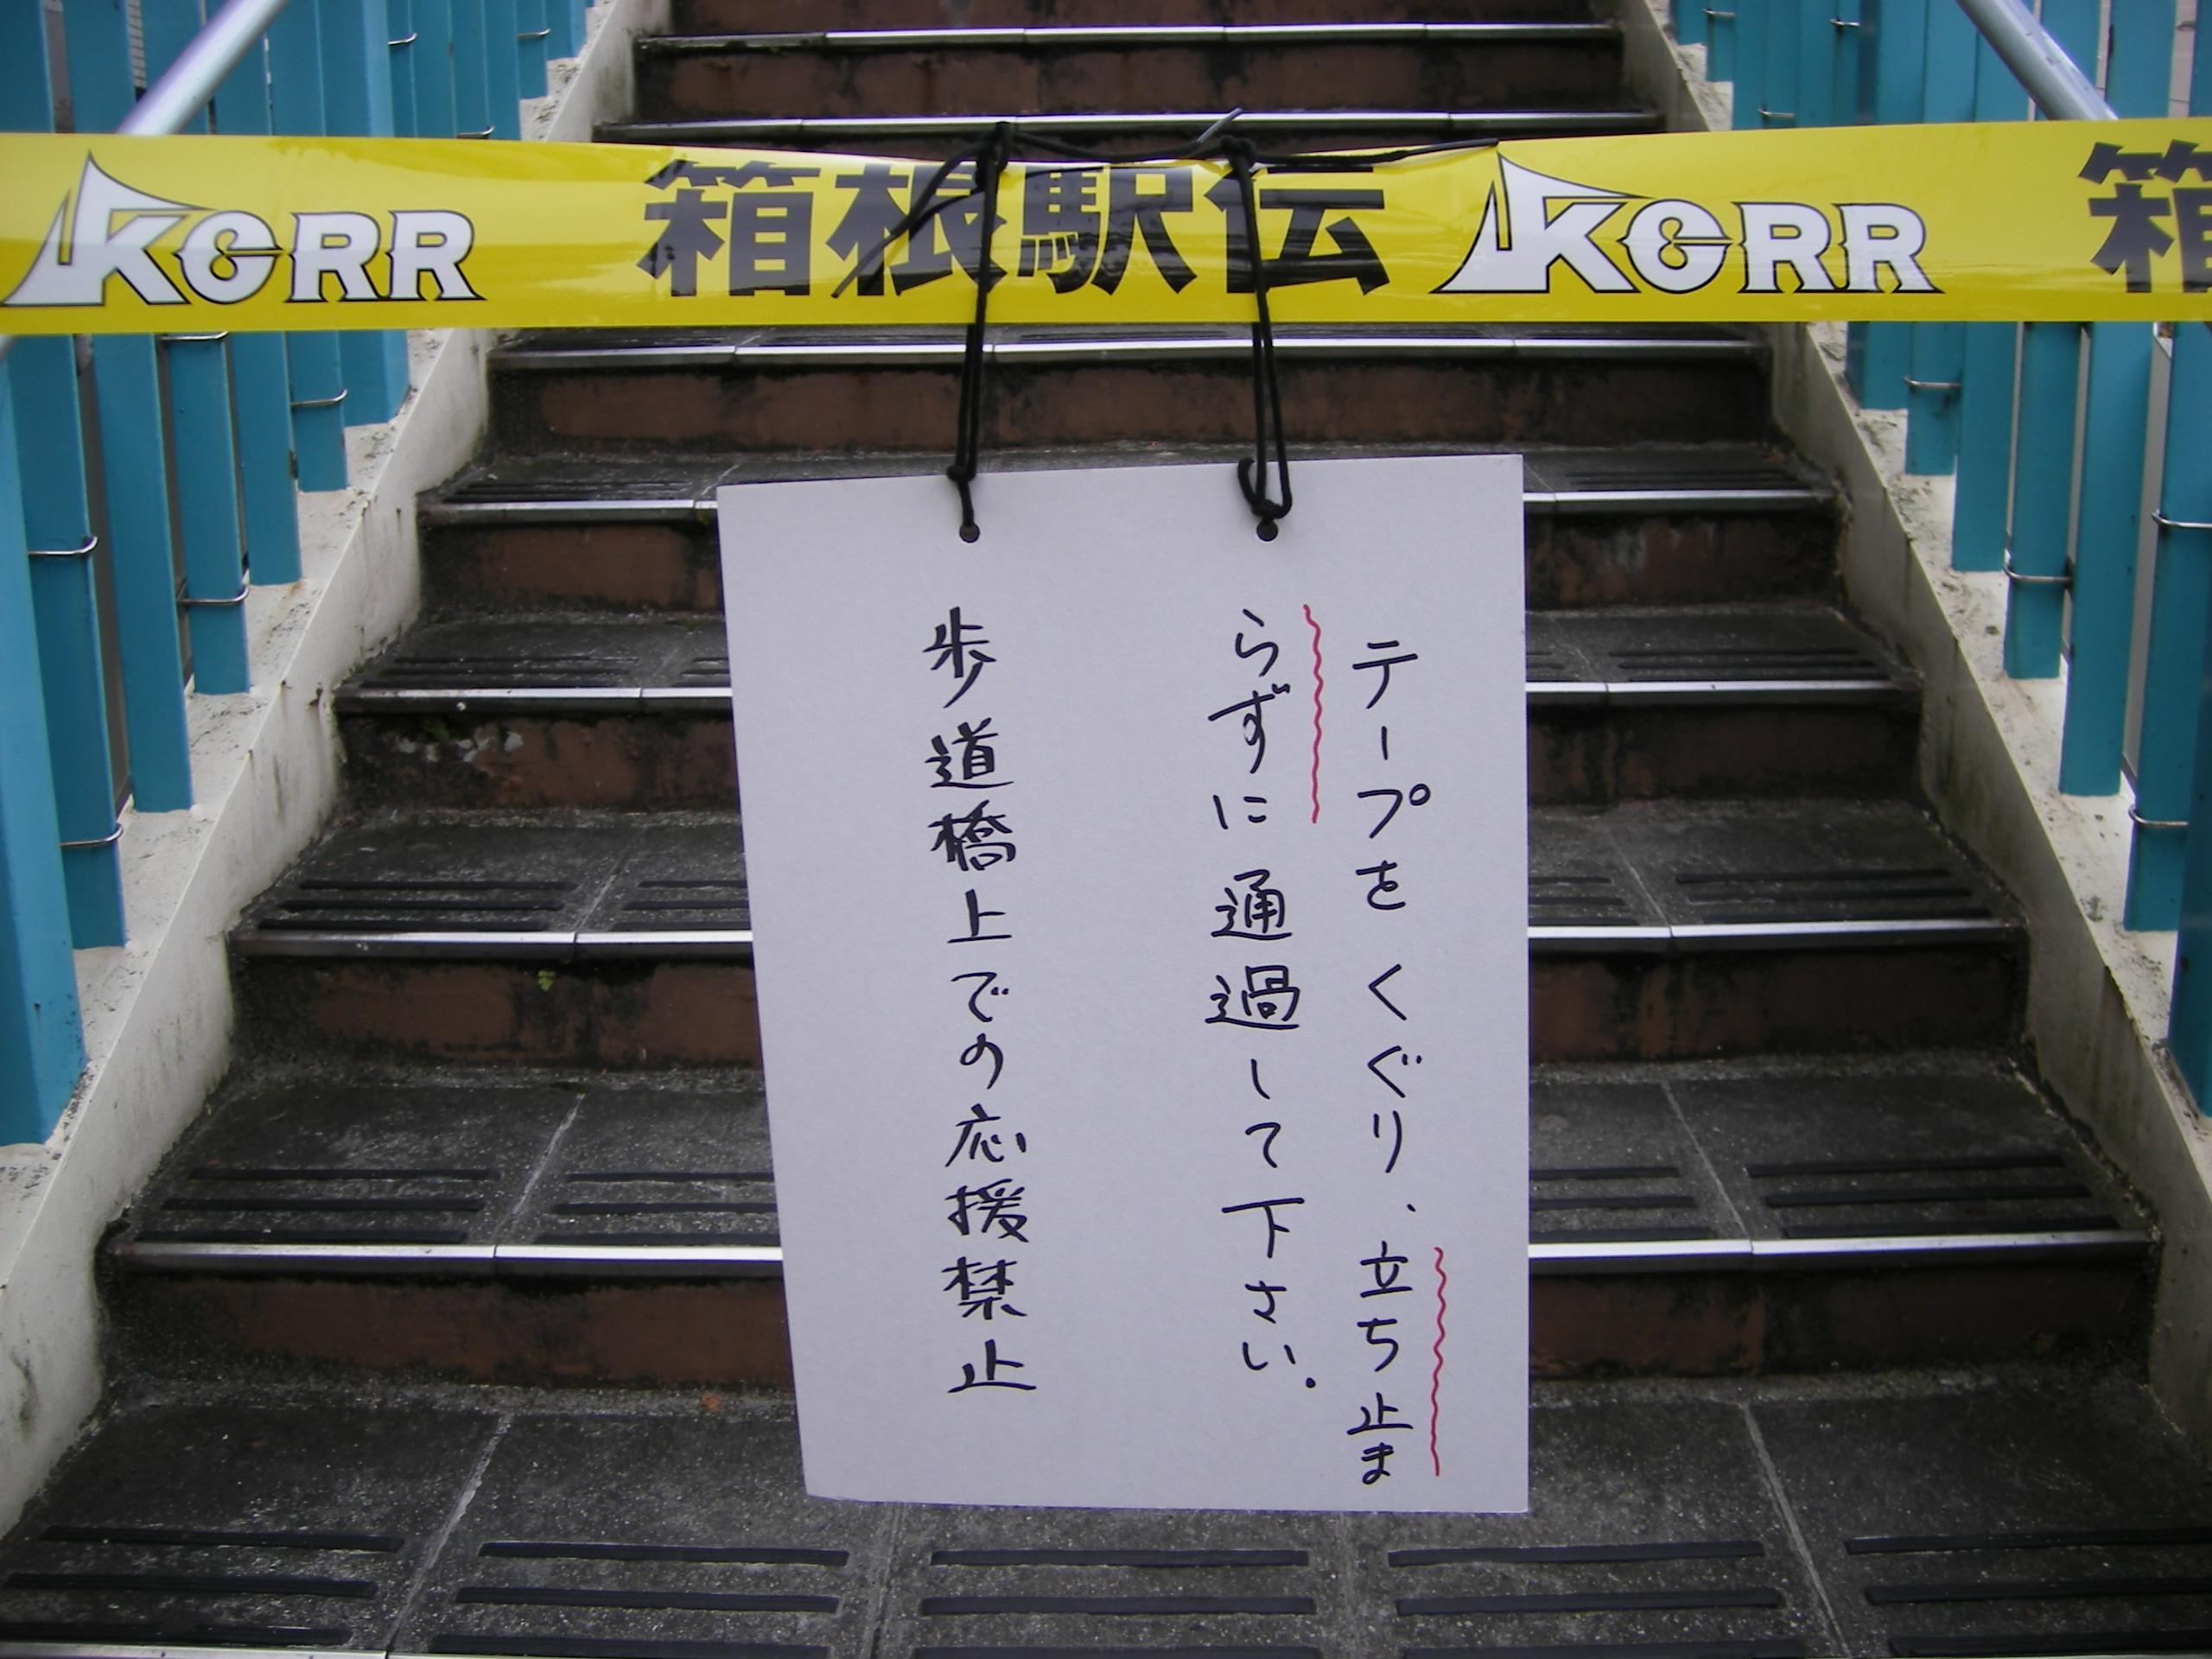 KGRR 箱根駅伝 KGRR 箱
テープをくぐり、立ち止ま
らずに通過して下さい。
歩道橋上での応援禁止